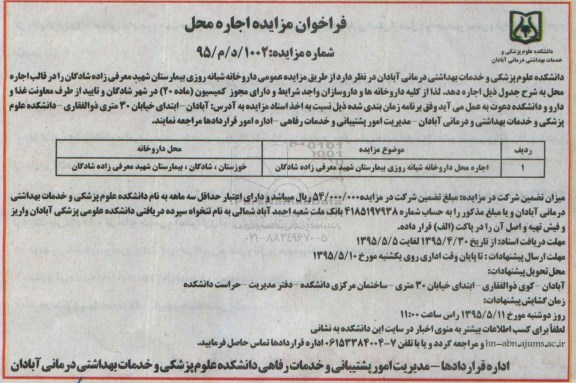 فراخوان مزایده اجاره محل
شماره مزایده: ۱۰۰۲/د/م/۹۵
دانشکده علوم پزشکی و
خدمات بهداشتی درمانی آبادان
دانشکده علوم پزشکی و خدمات بهداشتی درمانی آبادان در نظر دارد از طریق مزایده عمومی داروخانه شبانه روزی بیمارستان شهید معرفی زاده شادگان را در قالب اجاره
محل به شرح جدول ذیل اجاره دهد. لذا از کلیه داروخانه ها و داروسازان واجد شرایط و دارای مجوز کمیسیون (ماده ۲۰) در شهر شادگان و تایید از طرف معاونت غذا و
دارو و دانشکده دعوت به عمل می آید وفق برنامه زمان بندی شده ذیل نسبت به اخذ اسناد مزایده به آدرس: آبادان - ابتدای خیابان ۳۰ متری ذوالفقاری - دانشکده علوم
پزشکی و خدمات بهداشتی و درمانی آبادان - مدیریت امور پشتیبانی و خدمات رفاهی - اداره امور قراردادها مراجعه نمایند.
ردیف موضوع مزایده محل داروخانه
۱ اجاره محل داروخانه شبانه روزی بیمارستان شهید معرفی زاده شادگان خوزستان ، شادگان ، بیمارستان شهید معرفی زاده شادگان
میزان تضمین شرکت در مزایده: مبلغ تضمین شرکت در مزایده ۵۴/۰۰۰/۰۰۰ ریال میباشد و دارای اعتبار حداقل سه ماهه به نام دانشکده علوم پزشکی و خدمات بهداشتی
درمانی آبادان و یا مبلغ مذکور را به حساب شماره ۴۱۸۵۱۹۷۹۳۸ بانک ملت شعبه احمد آباد شمالی به نام تنخواه سپرده دریافتی دانشکده علومی پزشکی آبادان واریز
و فیش تهیه و اصل آن را در پاکت (الف) قرار داده.
مهلت دریافت اسناد: از تاریخ ۱۳۹۵/۴/۳۰ لغایت ۱۳۹۵/۵/۵
مهلت ارسال پیشنهادات : تا پایان وقت اداری روی یکشنبه مورخ ۱۳۹۵/۵/۱۰
محل تحویل پیشنهادات:
آبادان - کوی ذوالفقاری - ابتدای خیابان ۳۰ متری - ساختمان مرکزی دانشکده - دفتر مدیریت - حراست دانشکده
زمان گشایش پیشنهادات:
روز دوشنبه مورخ ۱۳۹۵/۵/۱۱ راس ساعت ۱۱:۰۰
لطفاً برای کسب اطلاعات بیشتر به منوی اخبار در سایت این دانشکده به نشانی
hn-abn.ajums.ac.ir و مراجعه گردد و یا با تلفن ۷-۰۶۱۵۳۳۸۴۰۰۴ اداره قراردادها تماس حاصل فرمایید.
اداره قراردادها - مدیریت امور پشتیبانی و خدمات رفاهی دانشکده علوم پزشکی و خدمات بهداشتی درمانی آبادان